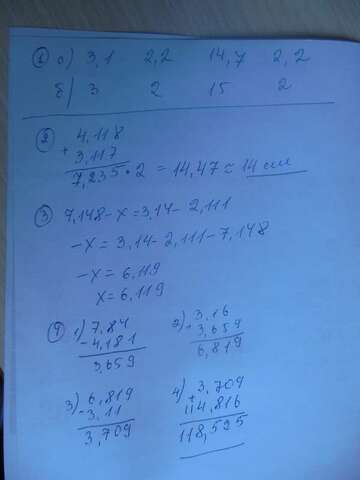 1 а) 3,1 2,2 14,7 2,2
б) 3 2 15 2
2
4,118
+ 3,117
7,235 • 2 = 14,47 ≈ 14 см
3 7,148 - x = 3,14 - 2,111
-x = 3,14 - 2,111 - 7,148
-x = 6,119
x = 6,119
4 1) 7,84 2) 3,16
- 4,181 + 3,659
3,659 6,819
3) 6,819 4) 3,709
- 3,11 + 114,816
3,709 118,525